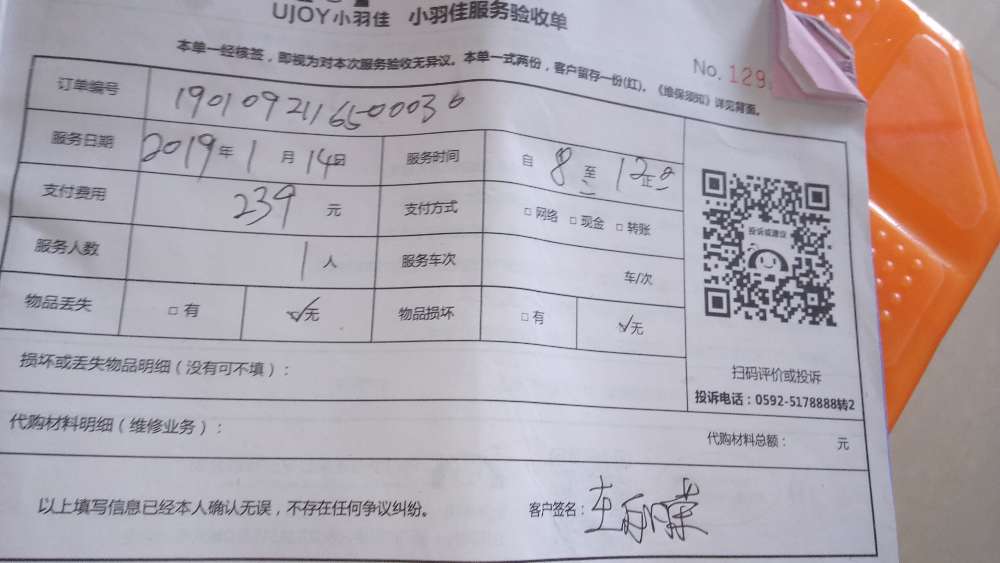 UJOY小羽佳 小羽佳服务验收单
本单一经核签，即视为对本次服务验收无异议。本单一式两份，客户留存一份(红)。《维保须知》详见背面。
No. 129
订单编号 190109211650003
服务日期 2019年1月14日 服务时间 自8至12止
支付费用 239 元 支付方式 □网络 □现金 □转账
服务人数 1人 服务车次 车/次
物品丢失 □有 ✓无 物品损坏 □有 ✓无
投诉或建议
扫码评价或投诉
投诉电话：0592-5178888转2
损坏或丢失物品明细（没有可不填）：
代购材料明细（维修业务）： 代购材料总额： 元
以上填写信息已经本人确认无误，不存在任何争议纠纷。 客户签名：